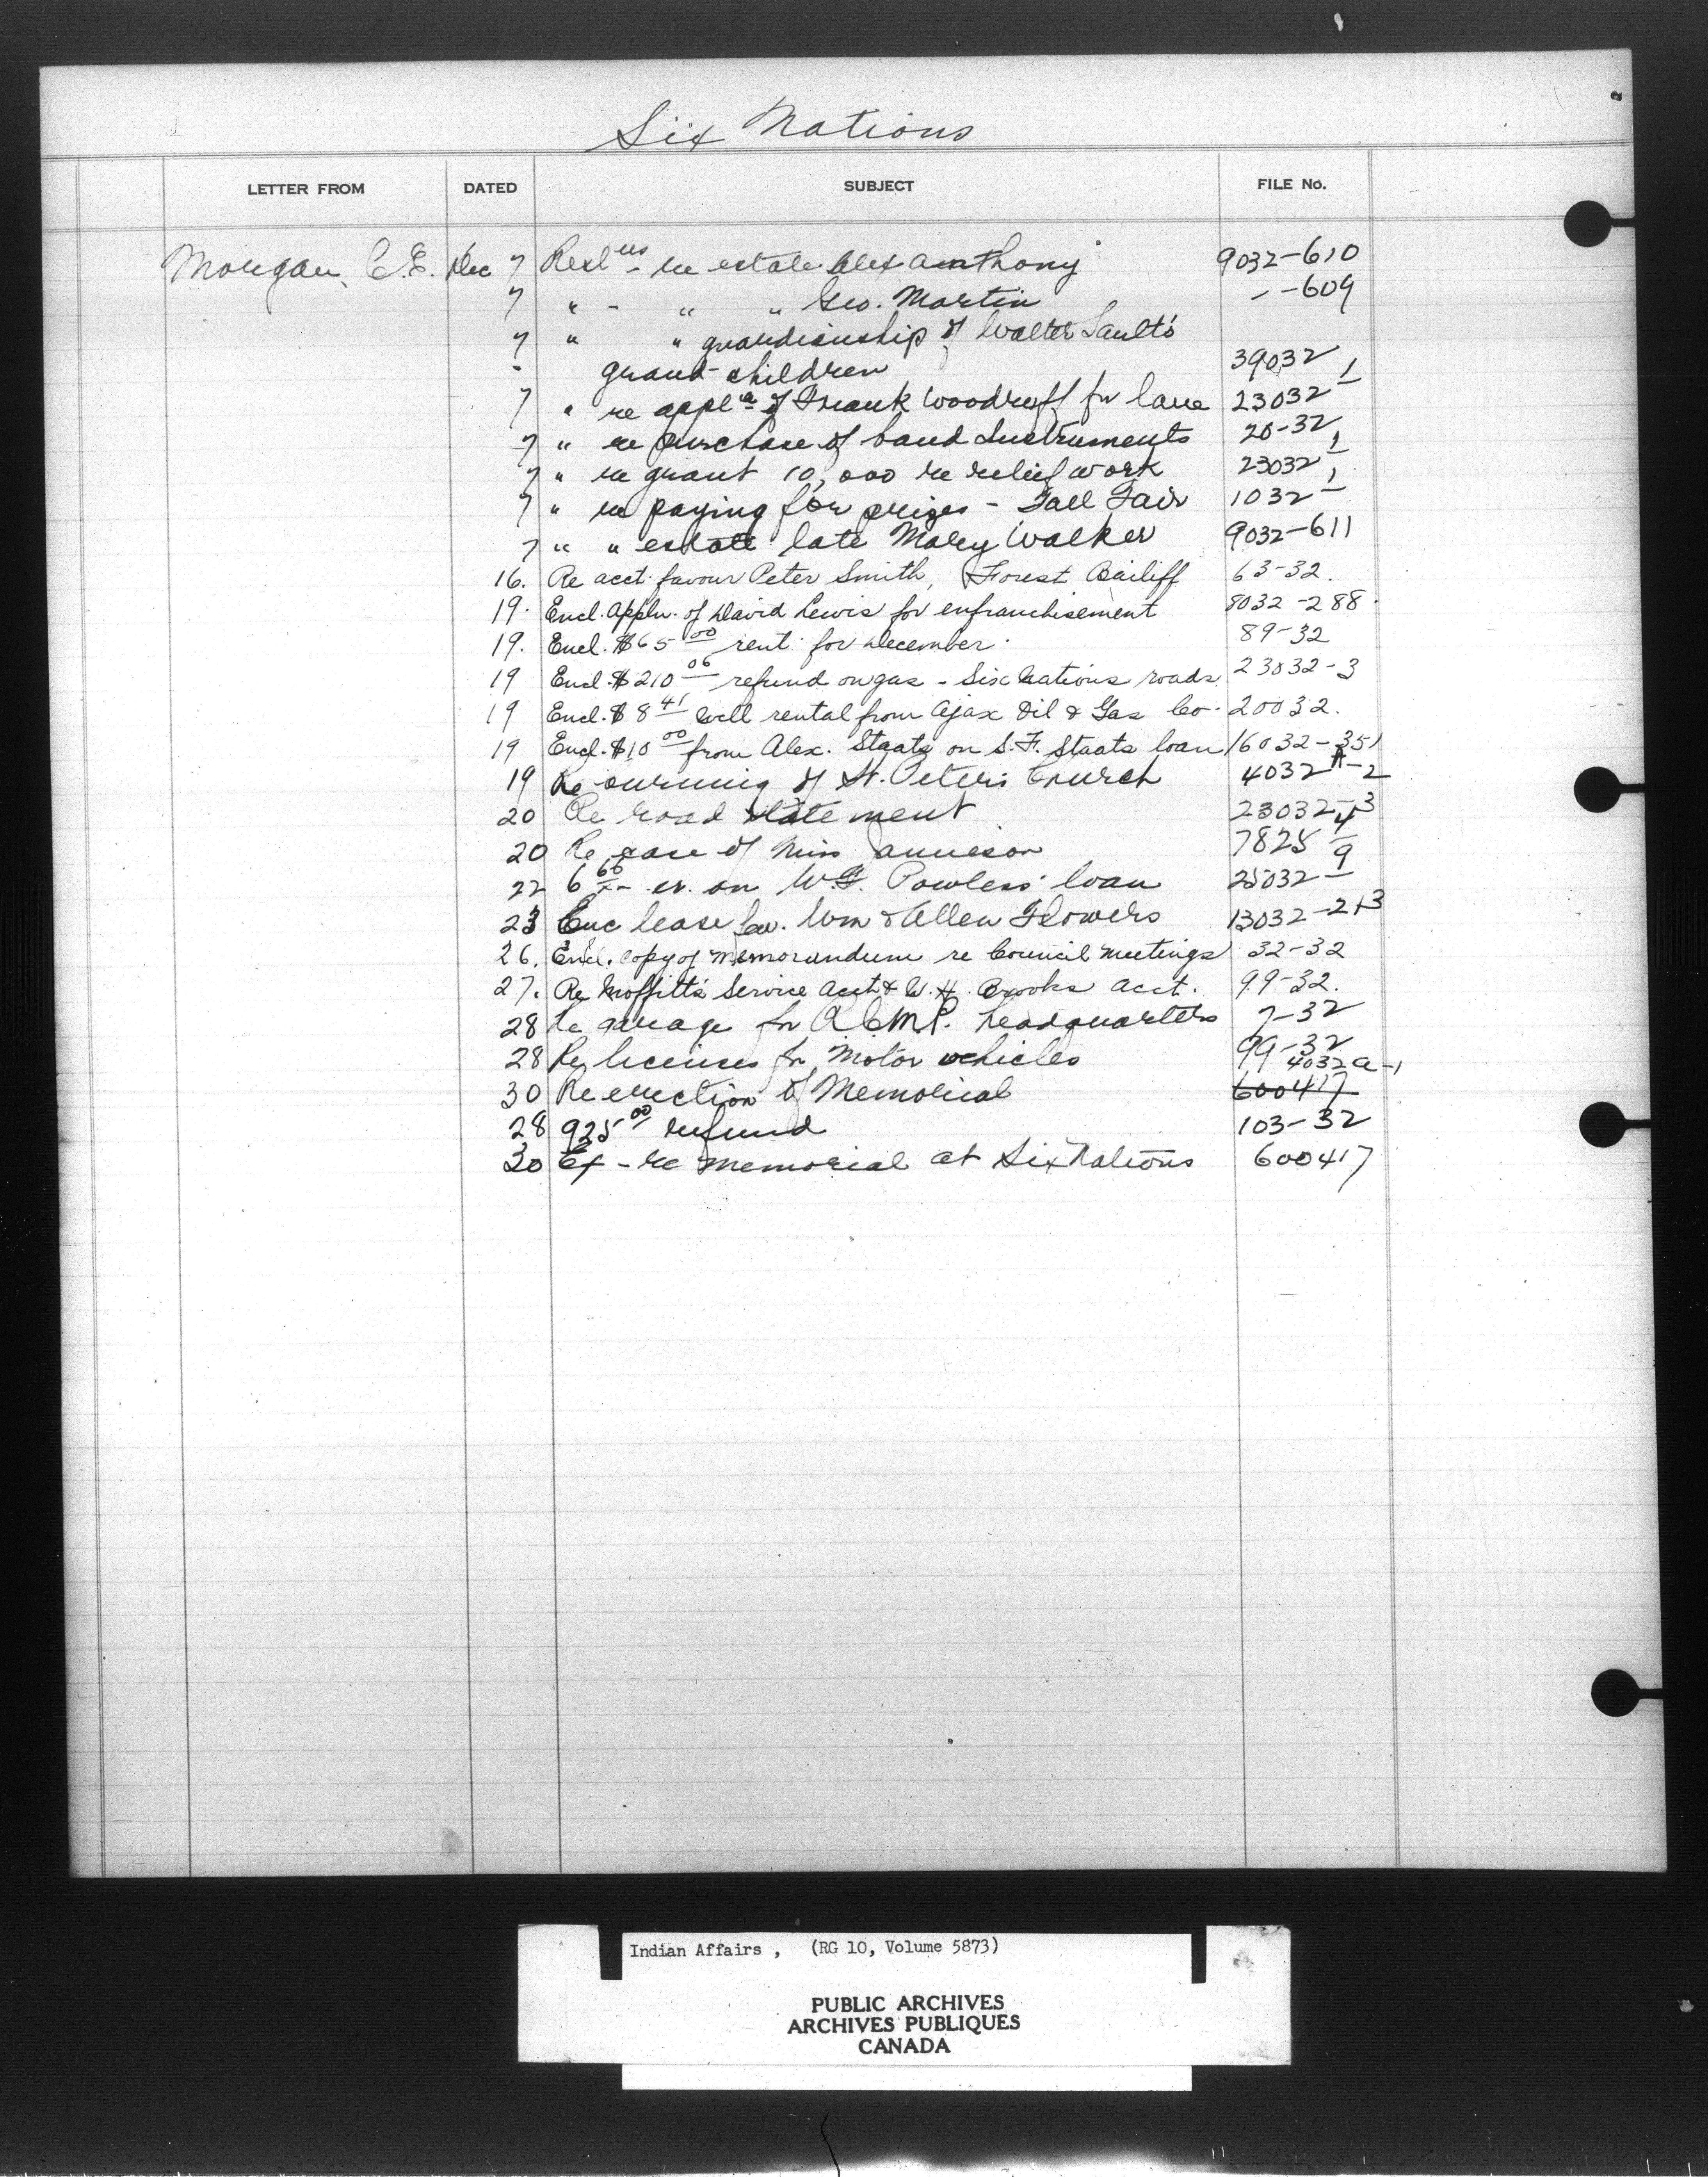 Six Nations
LETTER FROM DATED SUBJECT FILE No.
Morgan, C.E. Dec 7 Resl ns - re estate Alex Anthony 9032-610
7 " - " " Geo. Martin - -609
7 " " guardianship of Walter Sault's
- grand-children 39032
7 " re appl n of Frank Woodruff for lane 23032-1
7 " re purchase of band Instruments 20-32
7 " re grant 10,000 re relief work 23032-1
7 " re paying for prizes - Fall Fair 1032-1
7 " " estate late Mary Walker 9032-611
16. Re acct. favour Peter Smith, Forest Bailiff 63-32.
19. Encl. Appln. of David Lewis for enfranchisement 8032-288.
19. Encl. $65 00 rent for December. 89-32
19 Encl. $210 06 refund on gas - Six Nations roads 23032-3
19 Encl. $8 41 well rental from Ajax Oil & Gas Co. 20032.
19 Encl. $10 00 from Alex. Staats on S.F. Staats loan 16032-351
19 Re burning of St. Peter's Church 4032A-2
20 Re road statement 23032-3
20 Re case of Miss Jamieson 7825-4
22 6 60 cr. on W.G. Powless' loan 25032-9
23 Enc lease fav. Wm & Allen Flowers 13032-2+3
26. Encl. copy of memorandum re Council meetings 32-32
27. Re Moffitt's Service Acct & W.H. Brooks acct. 99-32.
28 Re garage for R.C.M.P. headquarters 7-32
28 Re licenses for Motor vehicles 99-32
30 Re erection of Memorial 4032A-1
600417
28 925 00 refund 103-32
30 Ex - re memorial at Six Nations 600417
Indian Affairs , (RG 10, Volume 5873)
PUBLIC ARCHIVES
ARCHIVES PUBLIQUES
CANADA